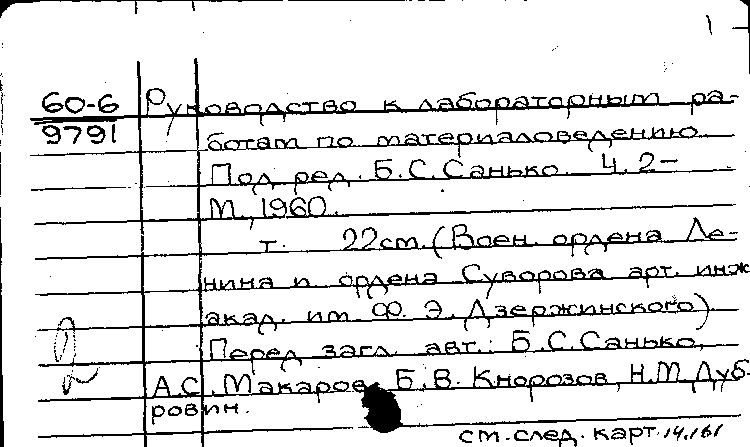 60-6
9791
Руководство к лабораторным ра-
ботам по материаловедению.
Под ред. Б.С.Санько. Ч. 2-
М., 1960.
т. 22см. (Воен. ордена Ле-
нина и ордена Суворова арт. инж
акад. им. Ф. Э. Дзержинского)
Перед загл. авт.: Б.С.Санько,
А.С. Макаров, Б.В. Кнорозов, Н.М.Дуб-
ровин.
2
см. след. карт.